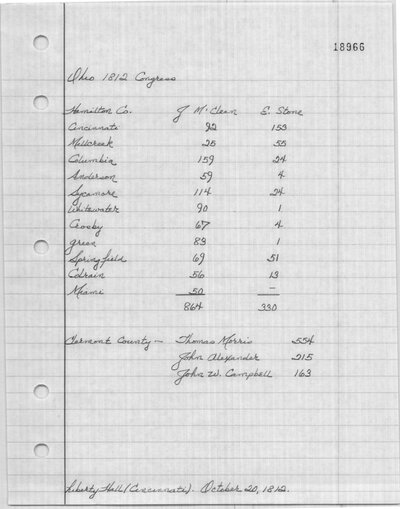 18966
Ohio 1812 Congress
Hamilton Co. J McClean E. Stone
Cincinnati 92 153
Millcreek 25 55
Columbia 159 24
Anderson 59 4
Sycamore 114 24
Whitewater 90 1
Crosby 67 4
Green 83 1
Springfield 69 51
Colrain 56 13
Miami 50 —
864 330
Clermont County — Thomas Morris 554
John Alexander 215
John W. Campbell 163
Liberty Hall (Cincinnati). October 20, 1812.